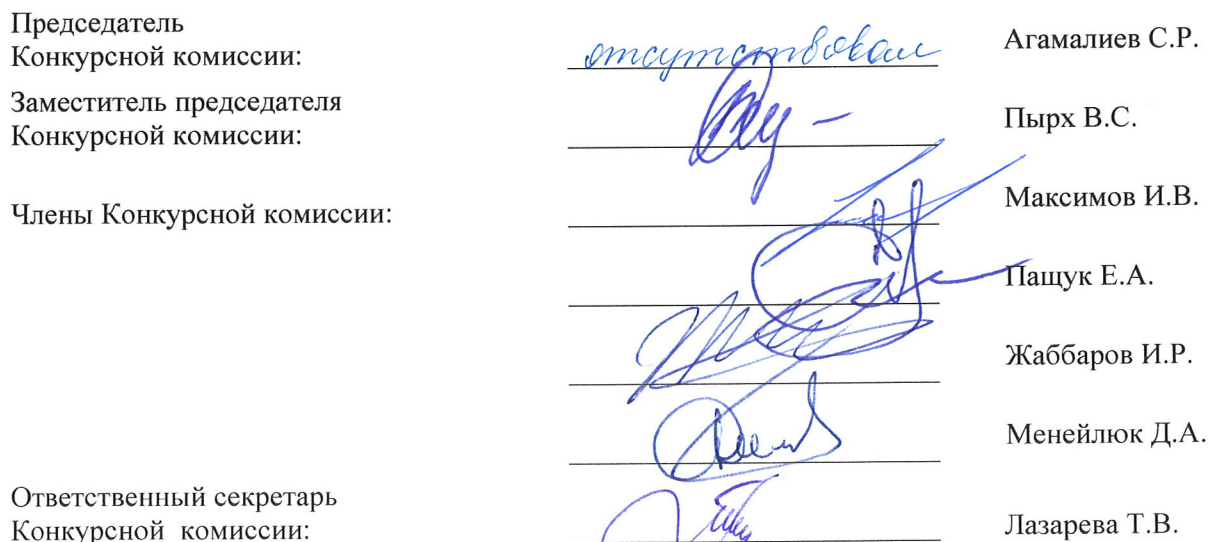 Председатель
Конкурсной комиссии: отсутствовал Агамалиев С.Р.
Заместитель председателя
Конкурсной комиссии: Пырх В.С.
Члены Конкурсной комиссии: Максимов И.В.
Пащук Е.А.
Жаббаров И.Р.
Менейлюк Д.А.
Ответственный секретарь
Конкурсной комиссии: Лазарева Т.В.